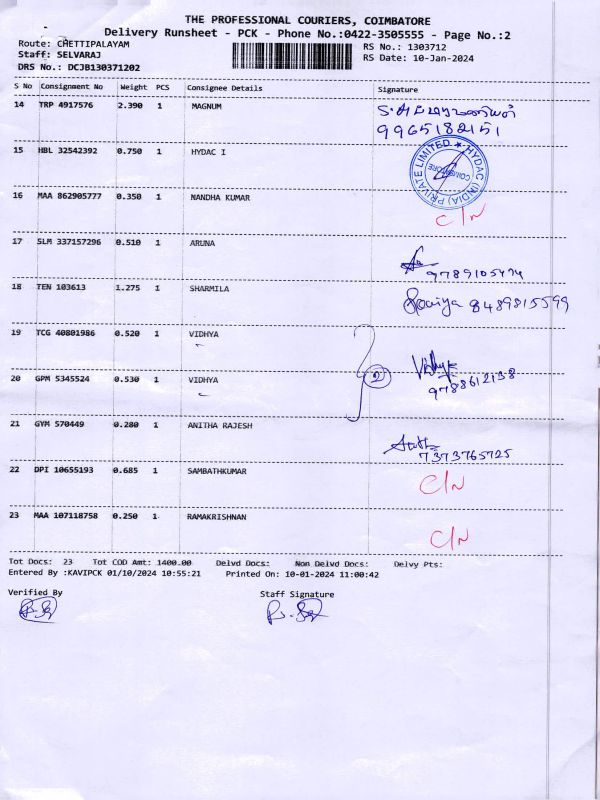 THE PROFESSIONAL COURIERS, COIMBATORE
Delivery Runsheet - PCK - Phone No.:0422-3505555 - Page No.:2
Route: CHETTIPALAYAM
Staff: SELVARAJ
DRS No.: DCJB130371202
RS No.: 1303712
RS Date: 10-Jan-2024
S No Consignment No Weight PCS Consignee Details Signature
14 TRP 4917576 2.390 1 MAGNUM
9965182151
15 HBL 32542392 0.750 1 HYDAC I
HYDAC (INDIA) PRIVATE LIMITED ★ COIMBATORE
16 MAA 862905777 0.350 1 NANDHA KUMAR C/N
17 SLM 337157296 0.510 1 ARUNA
9789105474
18 TEN 103613 1.275 1 SHARMILA
8489815599
19 TCG 40801986 0.520 1 VIDHYA
20 GPM 5345524 0.530 1 VIDHYA 2 Vidhya
9788612138
21 GYM 570449 0.280 1 ANITHA RAJESH
7373765725
22 DPI 10655193 0.685 1 SAMBATHKUMAR C/N
23 MAA 107118758 0.250 1 RAMAKRISHNAN C/N
Tot Docs: 23 Tot COD Amt: 1400.00 Delvd Docs: Non Delvd Docs: Delvy Pts:
Entered By :KAVIPCK 01/10/2024 10:55:21 Printed On: 10-01-2024 11:00:42
Verified By Staff Signature